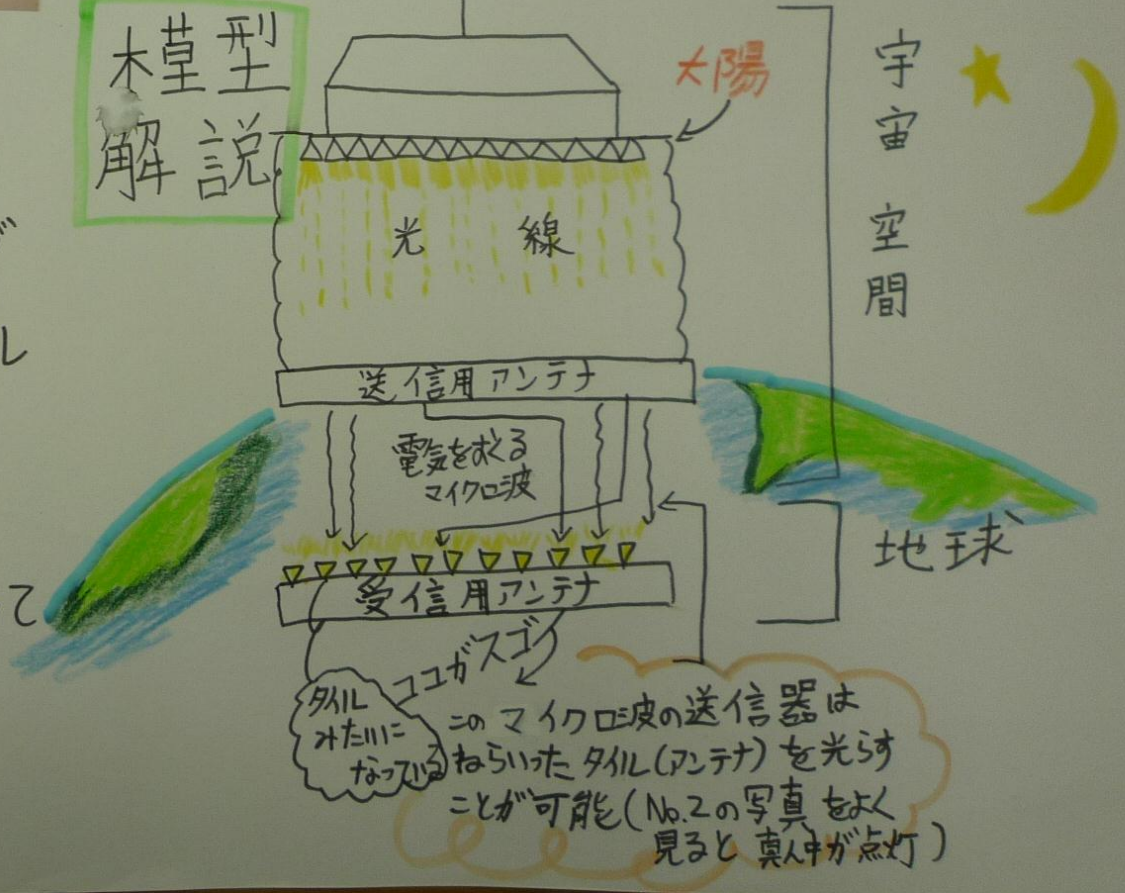 模型
解説
太陽
宇宙空間
光線
送信用アンテナ
電気をおくる
マイクロ波
地球
受信用アンテナ
ココガスゴイ
タイル
みたいに
なっている
このマイクロ波の送信器は
ねらいったタイル(アンテナ)を光らす
ことが可能(No.2の写真をよく
見ると真ん中が点灯)
て